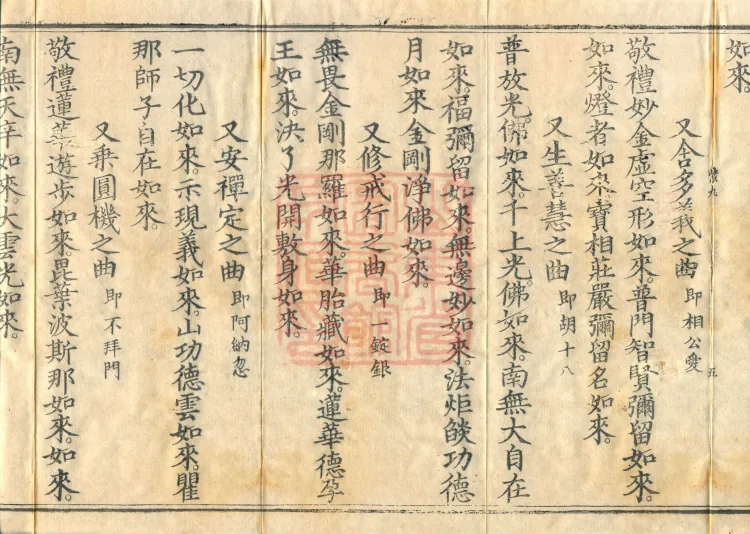 如來。
又舍多義之曲 即相公愛
雞九
五
敬禮妙金虛空形如來。普門智賢彌留如來。
如來。燈者如來寶相莊嚴彌留名如來。
又生善慧之曲 即胡十八
普放光佛如來。千上光佛如來。南無大自在
如來。福彌留如來。無邊妙如來。法炬燄功德
月如來金剛淨佛如來。
又修戒行之曲 即一錠銀
無畏金剛那羅如來。華胎藏如來。蓮華德孕
王如來。決了光開敷身如來。
又安禪定之曲 即阿納忽
一切化如來。示現義如來。山功德雲如來。瞿
那師子自在如來。
又乘圓機之曲 即不拜門
敬禮蓮華遊步如來。毘葉波斯那如來。如來。
南無天辛如來。大雲光如來。